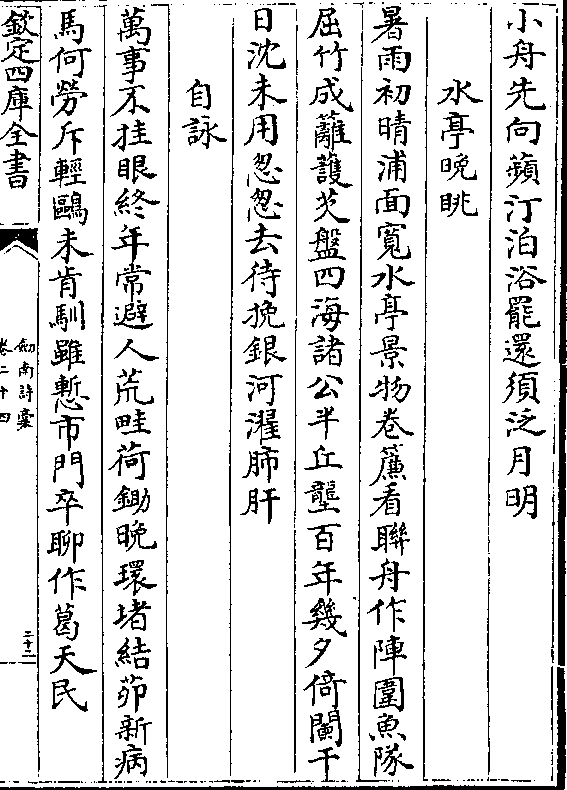 小舟先向蘋汀泊浴罷還須泛月明
水亭晚眺
暑雨初晴浦面寬水亭景物卷簾看聯舟作陣圍魚隊
屈竹成籬護芡盤四海諸公半丘壟百年幾夕倚闌干
日沈未用怱怱去待挽銀河濯肺肝
自詠
萬事不挂眼終年常避人荒畦荷鋤晚環堵結茆新病
馬何勞斥輕鷗未肯馴雖慙市門卒聊作葛天民
欽定四庫全書
劍南詩藁
卷二十四
二十二